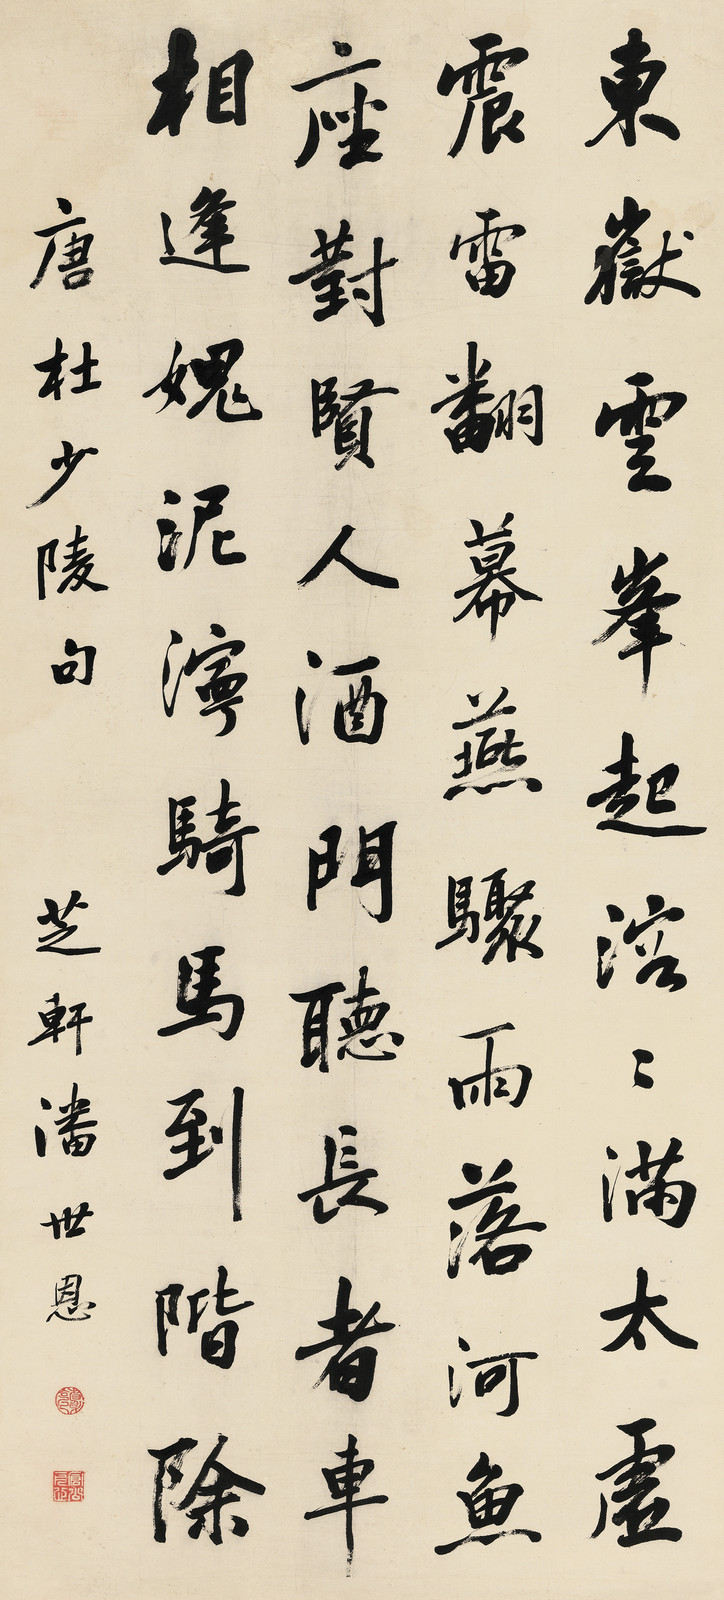 東嶽雲峯起溶〻滿太虛
震雷翻幕燕驟雨落河魚
座對賢人酒門聽長者車
相逢媿泥濘騎馬到階除
唐杜少陵句
芝軒潘世恩